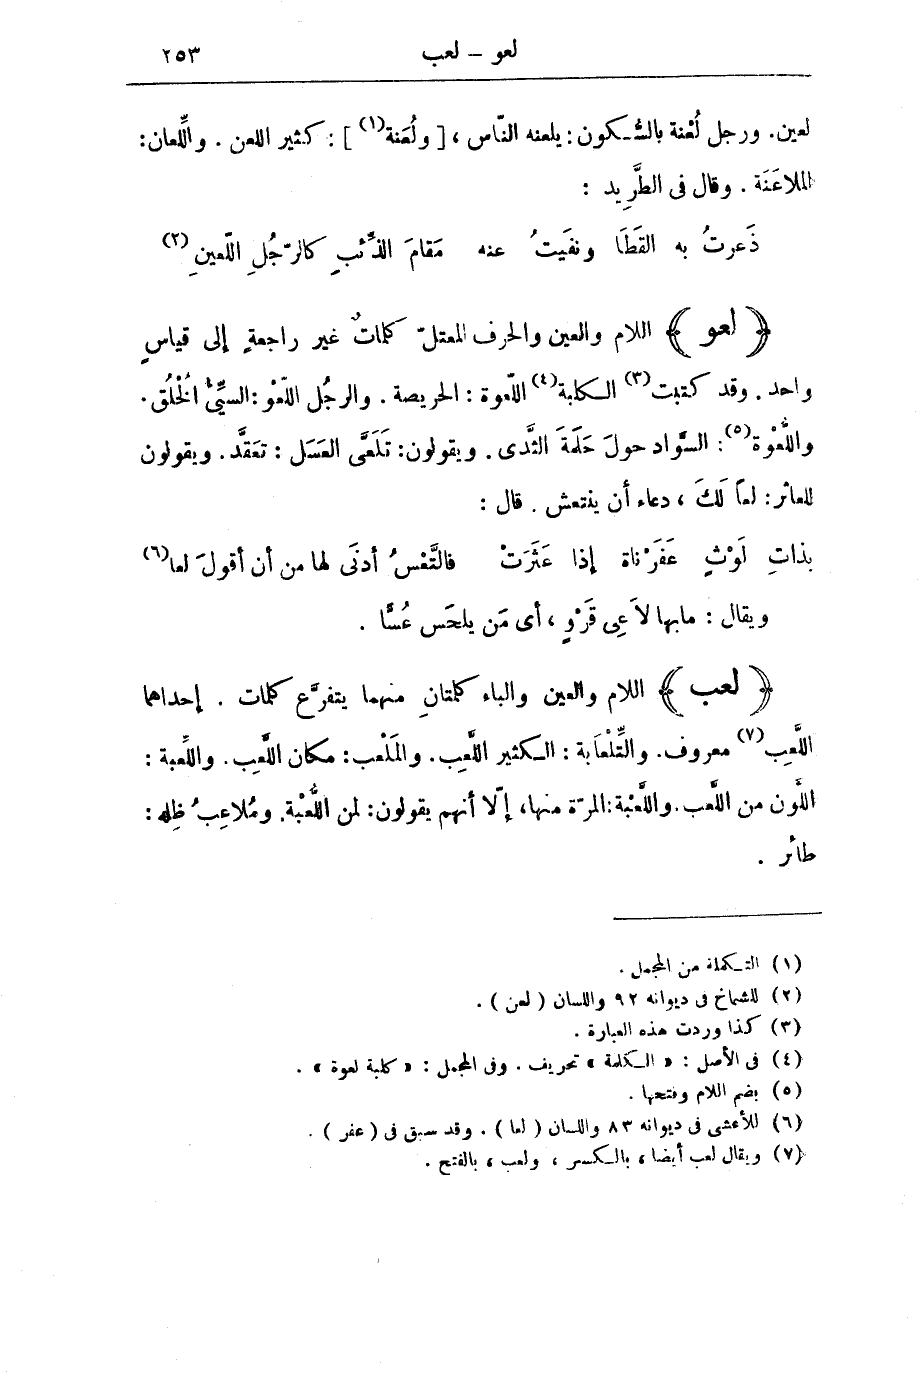 لعو – لعب ٢٥٣
لعين. ورجل لُعْنة بالسُّكون: يلعنه النّاس ، [ ولُعَنة(١) ] : كثير اللعن . واللِّعان:
الملاعَنَة . وقال فى الطَّرِيد :
ذَعرتُ به القَطَا ونفَيتُ عنه مَقامَ الذِّئبِ كالرّجُلِ اللّعينِ(٢)
﴿ لعو ﴾ اللام والعين والحرف المعتلّ كلماتٌ غير راجعةٍ إلى قياسٍ
واحد. وقد كتبت(٣) الكلبة(٤) اللّعوة : الحريصة . والرجُل اللعْو : السيِّئ الخُلُق.
واللُّعْوة(٥): السَّواد حولَ حَلَمَة الثَّدى . ويقولون: تَلَعَّى العَسَل : تعَقَّد. ويقولون
للعاثر: لعاً لَكَ ، دعاء أن ينتعش . قال :
بذاتِ لَوْثٍ عَفَرْناة إذا عَثَرَتْ فالتَّعْسُ أدنَى لها من أن أقولَ لعا(٦)
ويقال : مابها لاَعِى قَرْوٍ ، أى مَن يلحَس عُسًّا .
﴿ لعب ﴾ اللام والعين والباء كلمتانِ منهما يتفرَّع كلمات . إحداهما
اللَّعِب(٧) معروف. والتِّلْعَابة : الكثير اللَّعِب. والمَلْعَب: مكان اللَّعِب. واللِّعبة :
اللَّون من اللَّعب. واللَّعْبة: المرّة منها، إلّا أنهم يقولون: لمن اللُّعْبة. ومُلاعِبُ ظِله :
طائر .
(١) التكملة من المجمل .
(٢) للشماخ فى ديوانه ٩٢ واللسان ( لعن ) .
(٣) كذا وردت هذه العبارة .
(٤) فى الأصل : « الكلمة » تحريف . وفى المجمل : « كلبة لعوة » .
(٥) بضم اللام وفتحها .
(٦) للأعشى فى ديوانه ٨٣ واللسان ( لعا ) . وقد سبق فى ( عفر ) .
(٧) ويقال لعب أيضا ، بالكسر ، ولعب ، بالفتح .